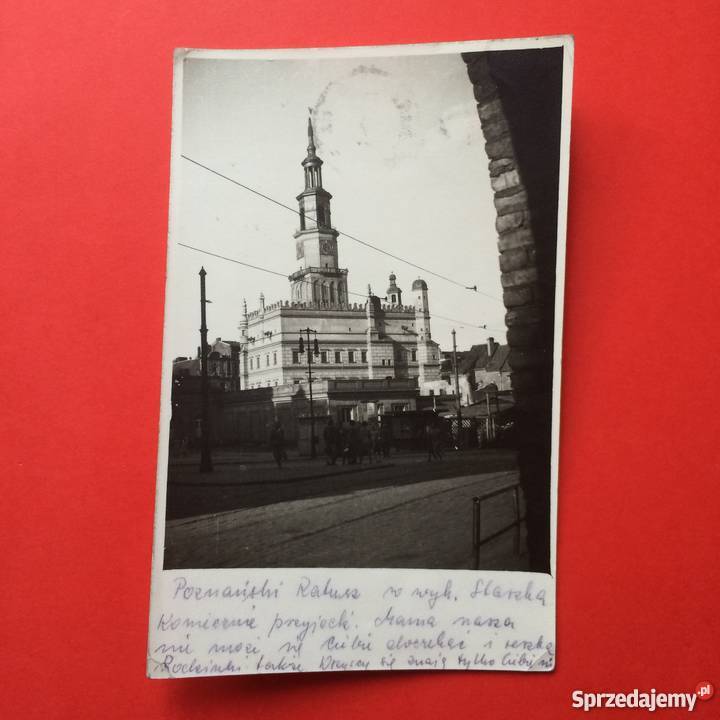 Poznański Ratusz w wyk. Staszka
Koniecznie przyjedź. Mama nasza
nie może się Ciebie doczekać i reszta
Rodzinki także. Wszyscy się znają tylko Ciebie
Sprzedajemy.pl